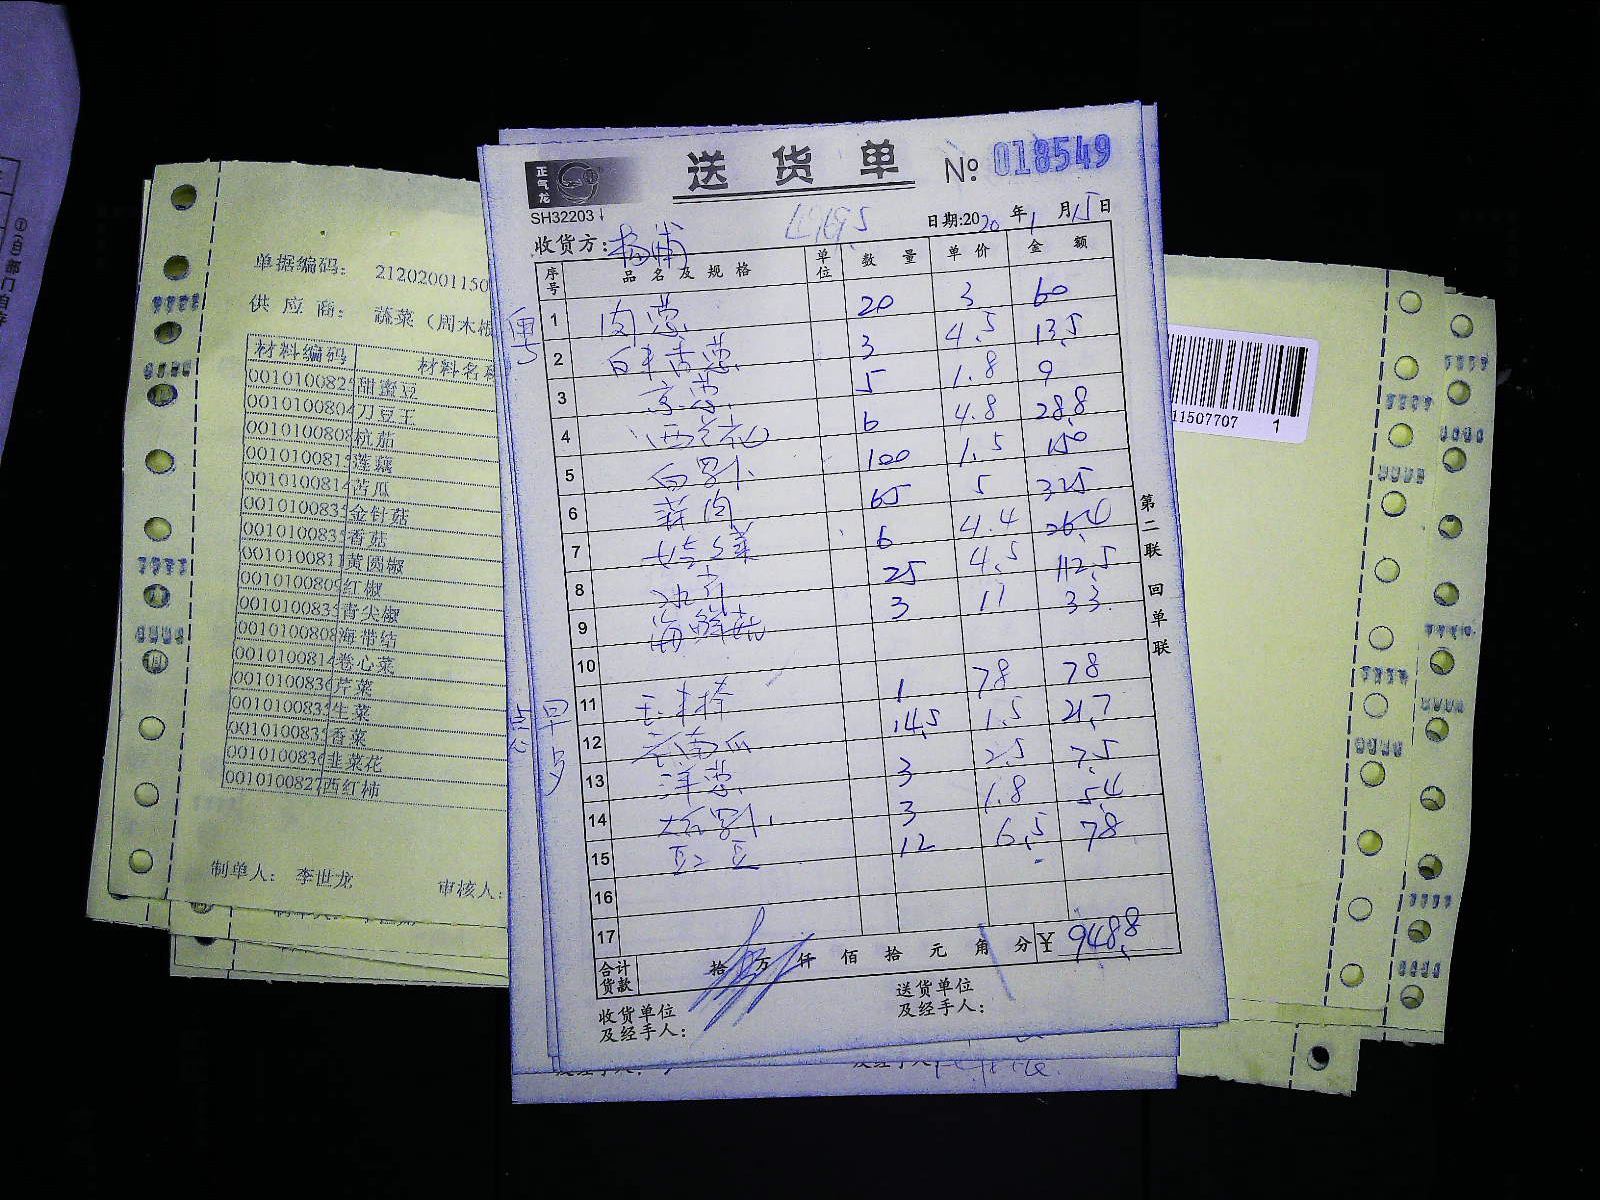 送货单 № 018549
正气龙
SH32203
日期:2020年1月15日
收货方:杨浦
序号 品名及规格 单位 数量 单价 金额
1 肉葱 20 3 60
2 3 4.5 13.5
3 京葱 5 1.8 9
4 西兰花 6 4.8 28.8
5 白罗卜 100 1.5 150
6 65 5 325
7 6 4.4 26.4
8 25 4.5 112.5
9 海鲜菇 3 11 33
10
11 玉米棒 1 78 78
12 老南瓜 14.5 1.5 21.7
13 洋葱 3 2.5 7.5
14 3 1.8 5.4
15 豇豆 12 6.5 78
16
17
合计货款 拾万仟佰拾元角分 ¥ 948.8
收货单位及经手人:
送货单位及经手人:
第二联 回单联
早点
点心
单据编码: 21202001150
供应商: 蔬菜(周木根
材料编码 材料名称
001010082 甜蜜豆
0010100804 刀豆王
0010100808 杭茄
001010081 莲藕
0010100814 苦瓜
001010083 金针菇
001010083 香菇
001010081 黄圆椒
001010080 红椒
001010083 青尖椒
0010100808 海带结
0010100814 卷心菜
0010100836 芹菜
001010083 生菜
001010083 香菜
0010100836 韭菜花
0010100827 西红柿
制单人: 李世龙
审核人:
11507707 1